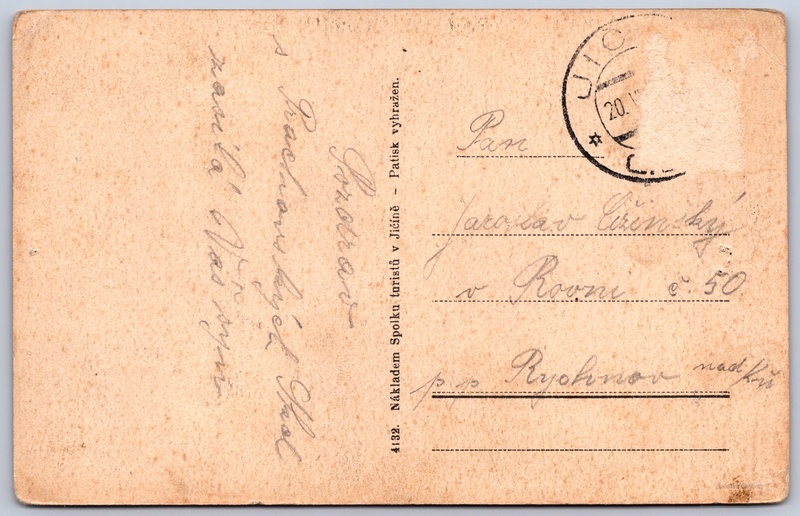 Pozdrav
s Prachovských Skal
zasílá Váš syn
4132. Nákladem Spolku turistů v Jičíně – Patisk vyhražen.
JIČ
20. V
Pan
Jaroslav
v Rovni č. 50
p p Rychnov nad Kň